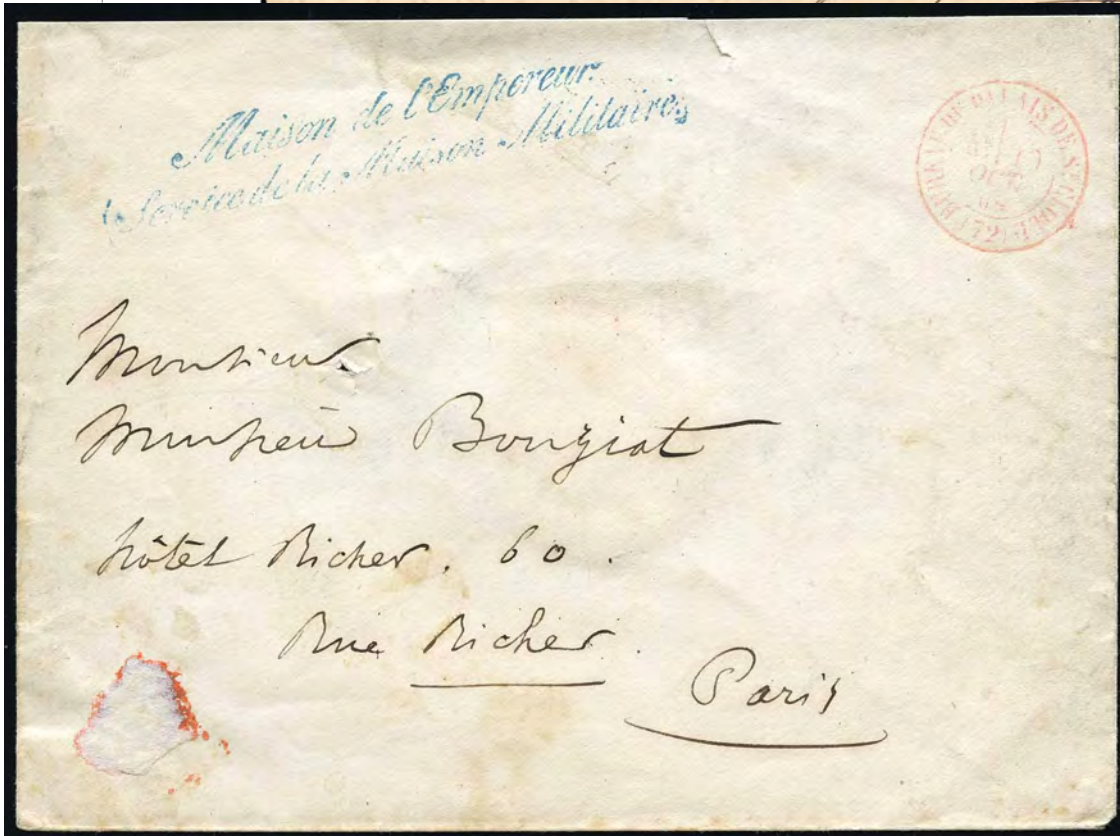 Maison de l'Empereur.
(Service de la Maison Militaire)
BUREAU DU PALAIS DE ST CLOUD (72)
OCT
68
Monsieur
Monsieur Bouziat
hôtel Richer. 60.
Rue Richer.
Paris